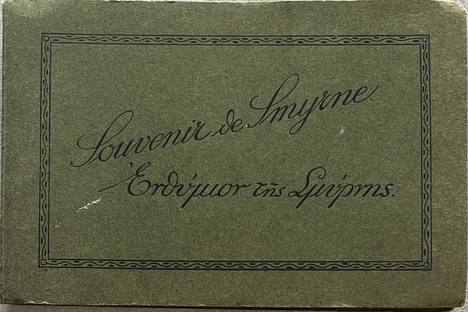 Souvenir de Smyrne.
Ἐνθύμιον τῆς Σμύρνης.